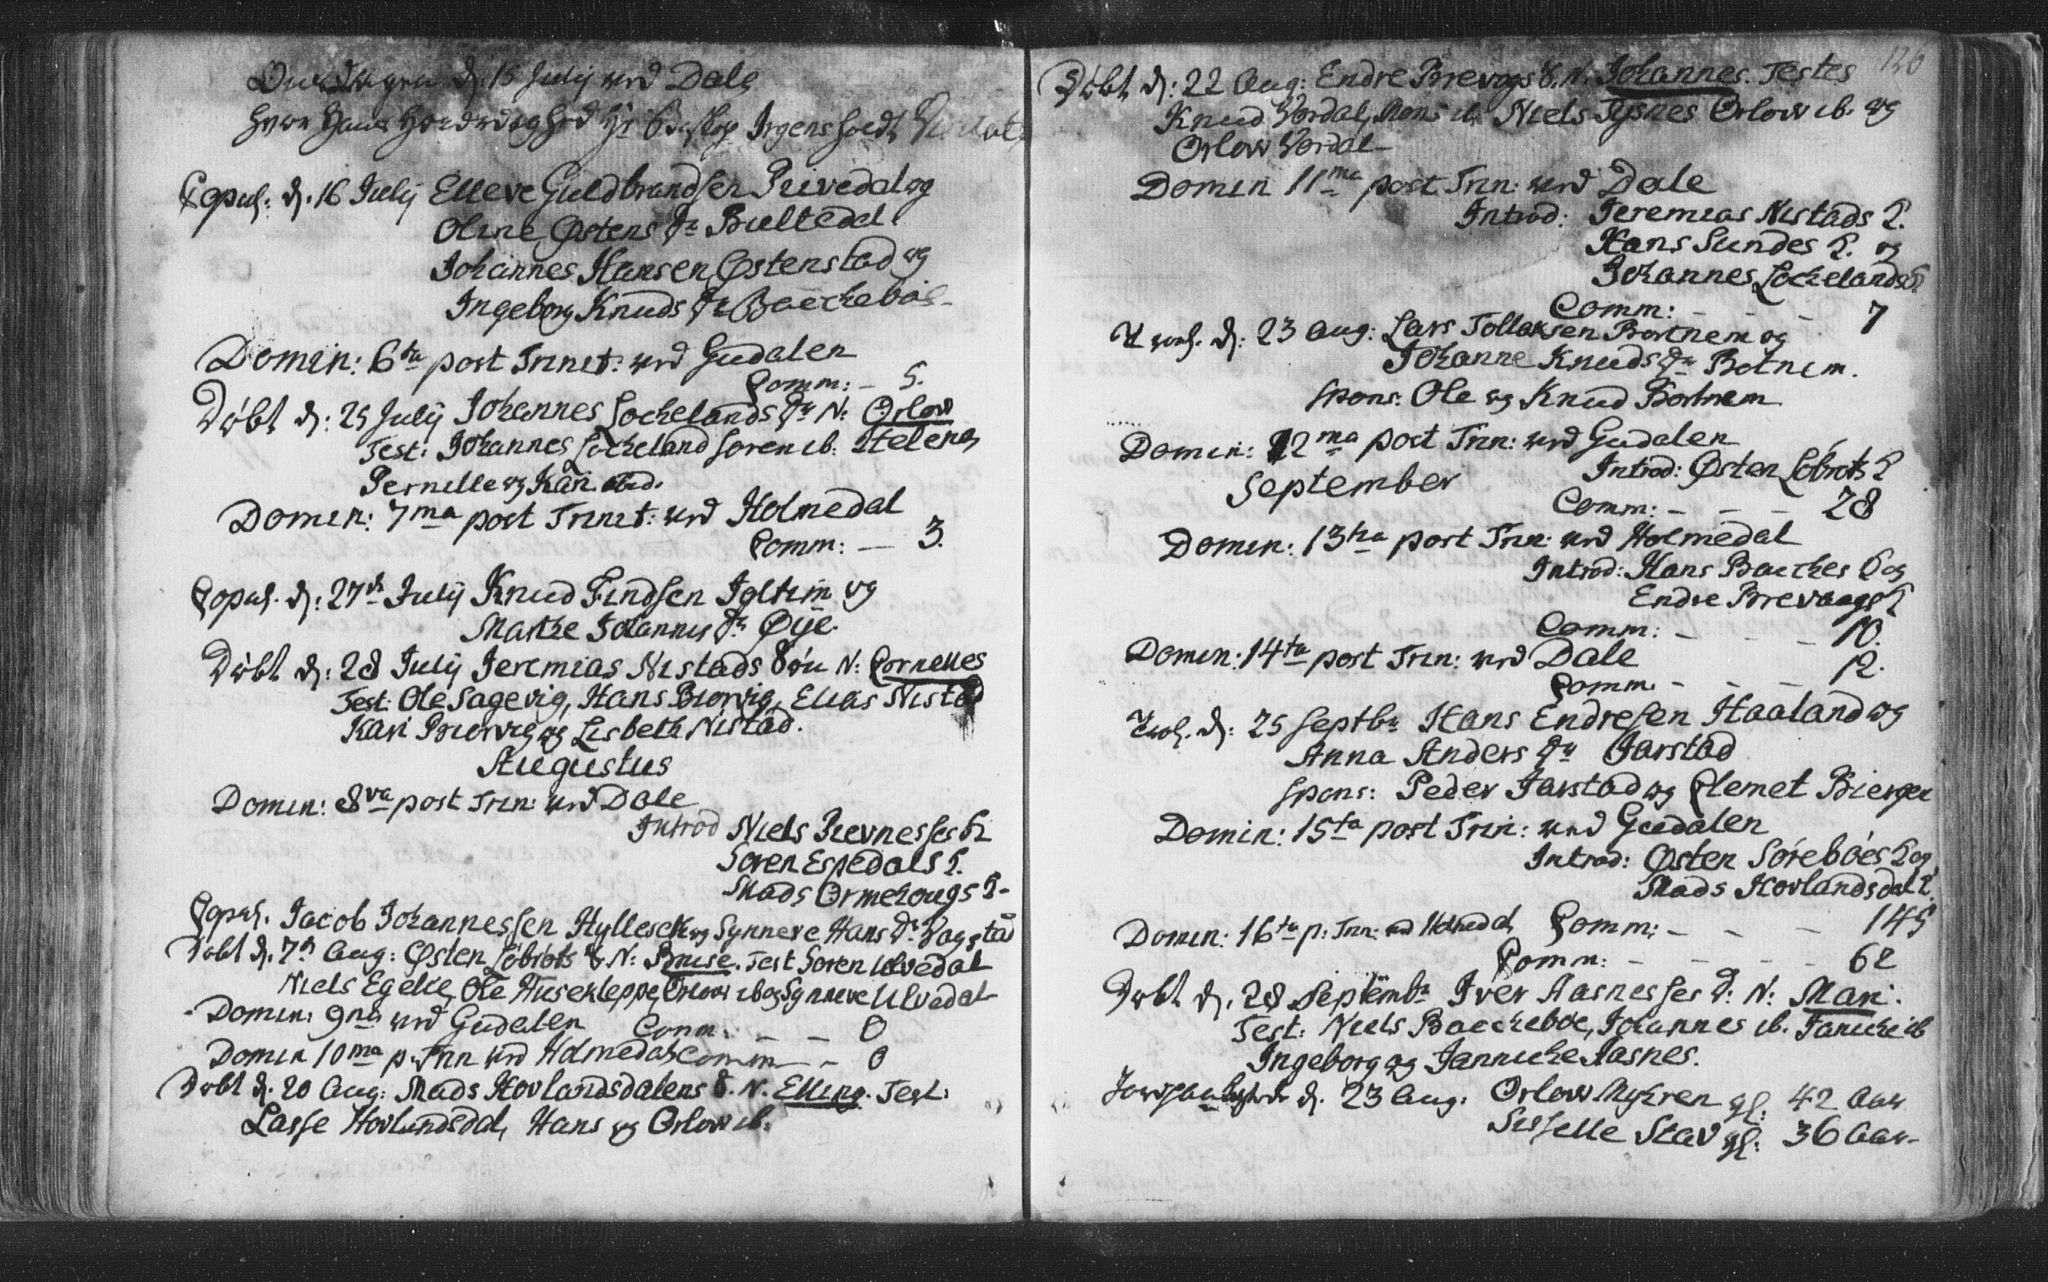 Onsdagen d: 15 July ved Dale
holt Hans Højædelhed Hr Biskop Irgens holdt Visitatz
Copul: d. 16 July Elleve Guldbrandsen Rivedal og
Oline Østens Dr Bultedal
Johannes Hansen Østenstad og
Ingeborg Knuds Dr Bæckeboe
Domin: 6ta post Trinit: ved Gudalen
Comm: – 5.
Døbt d: 25 July Johannes Lockelands Dr N: Orlow
Test: Johannes Lockeland Soren ib. Helene
Pernille og Kari ibid.
Domin: 7ma post Trinit: ved Holmedal
Comm: — 3.
Copul. d: 27de July Knud Findsen Igltim og
Marthe Johannis Dr Øye.
Døbt d: 28 July Jeremias Nistads Søn N: Cornelles
Test: Ole Sagevig, Hans Biervig, Elias Nistad
Kari Biervig og Lisbeth Nistad.
Augustus
Domin: 8va post Trin: ved Dale
Introd Niels Rievnesses K
Soren Espedals K.
Mads Ormehougs K.
Copul. Jacob Johannessen Hylleseth og Synneve Hans Dr Vaagstad
Døbt d. 7de Aug: Østen Løbrots S N: Bruse. Test Soren Ulvedal
Niels Egelie, Ole Husekleppe, Orlow ib og Synneve Ulvedal
Domin: 9na ved Gudalen Comm: – – 0
Domin 10ma p. Trin ved Holmedal Comm – – 0
Døbt d. 20 Aug: Mads Hovlandsdalens S. N. Elling. Test:
Lasse Hovlandsdal, Hans og Orlow ib.
126
Døbt d: 22 Aug: Endre Brevogs S. N: Johannes. Testes
Knud Vordal, Mons ib. Niels Tysnes Orlow ib. og
Orlow Vordal
Domin 11ma post Trin: ved Dale
Introd: Jeremias Nistads K.
Hans Sundes K. og
Johannes Lockelands K.
Comm: – – – 7
Trol. d: 23 Aug: Lars Tollaksen Bortnem og
Johanne Knuds Dr Botnem.
Spons: Ole og Knud Bortnem
Domin: 12ma post Trin: ved Gudalen
Introd: Østen Løbrots K
September
Comm: – – – 28
Domin: 13tia post Trin: ved Holmedal
Introd: Hans Bæckes K og
Endre Brevaags K
Comm: – – – 10.
Domin: 14ta post Trin: ved Dale
Comm – – – 12.
Trol. d: 25 Septbr Hans Endresen Haaland og
Anna Anders Dr Jarstad
Spons: Peder Jarstad og Clemet Bierge
Domin: 15ta post Trin: ved Gudalen
Introd: Østen Søreboes K og
Mads Hovlandsdal K.
Comm: – – – 145
Domin: 16ta p: Trin: ved Holmedal
Comm: – – – – 62
Døbt d. 28 Septembr Iver Aasnesses D: N: Mari.
Test: Niels Bæckeboe, Johannes ib. Janiche ib
Ingeborg og Janniche Aasnes.
Jordpaakastede d. 23 Aug: Orlow Myhren gl: 42 Aar
Sisselle Stav gl: 36 Aar